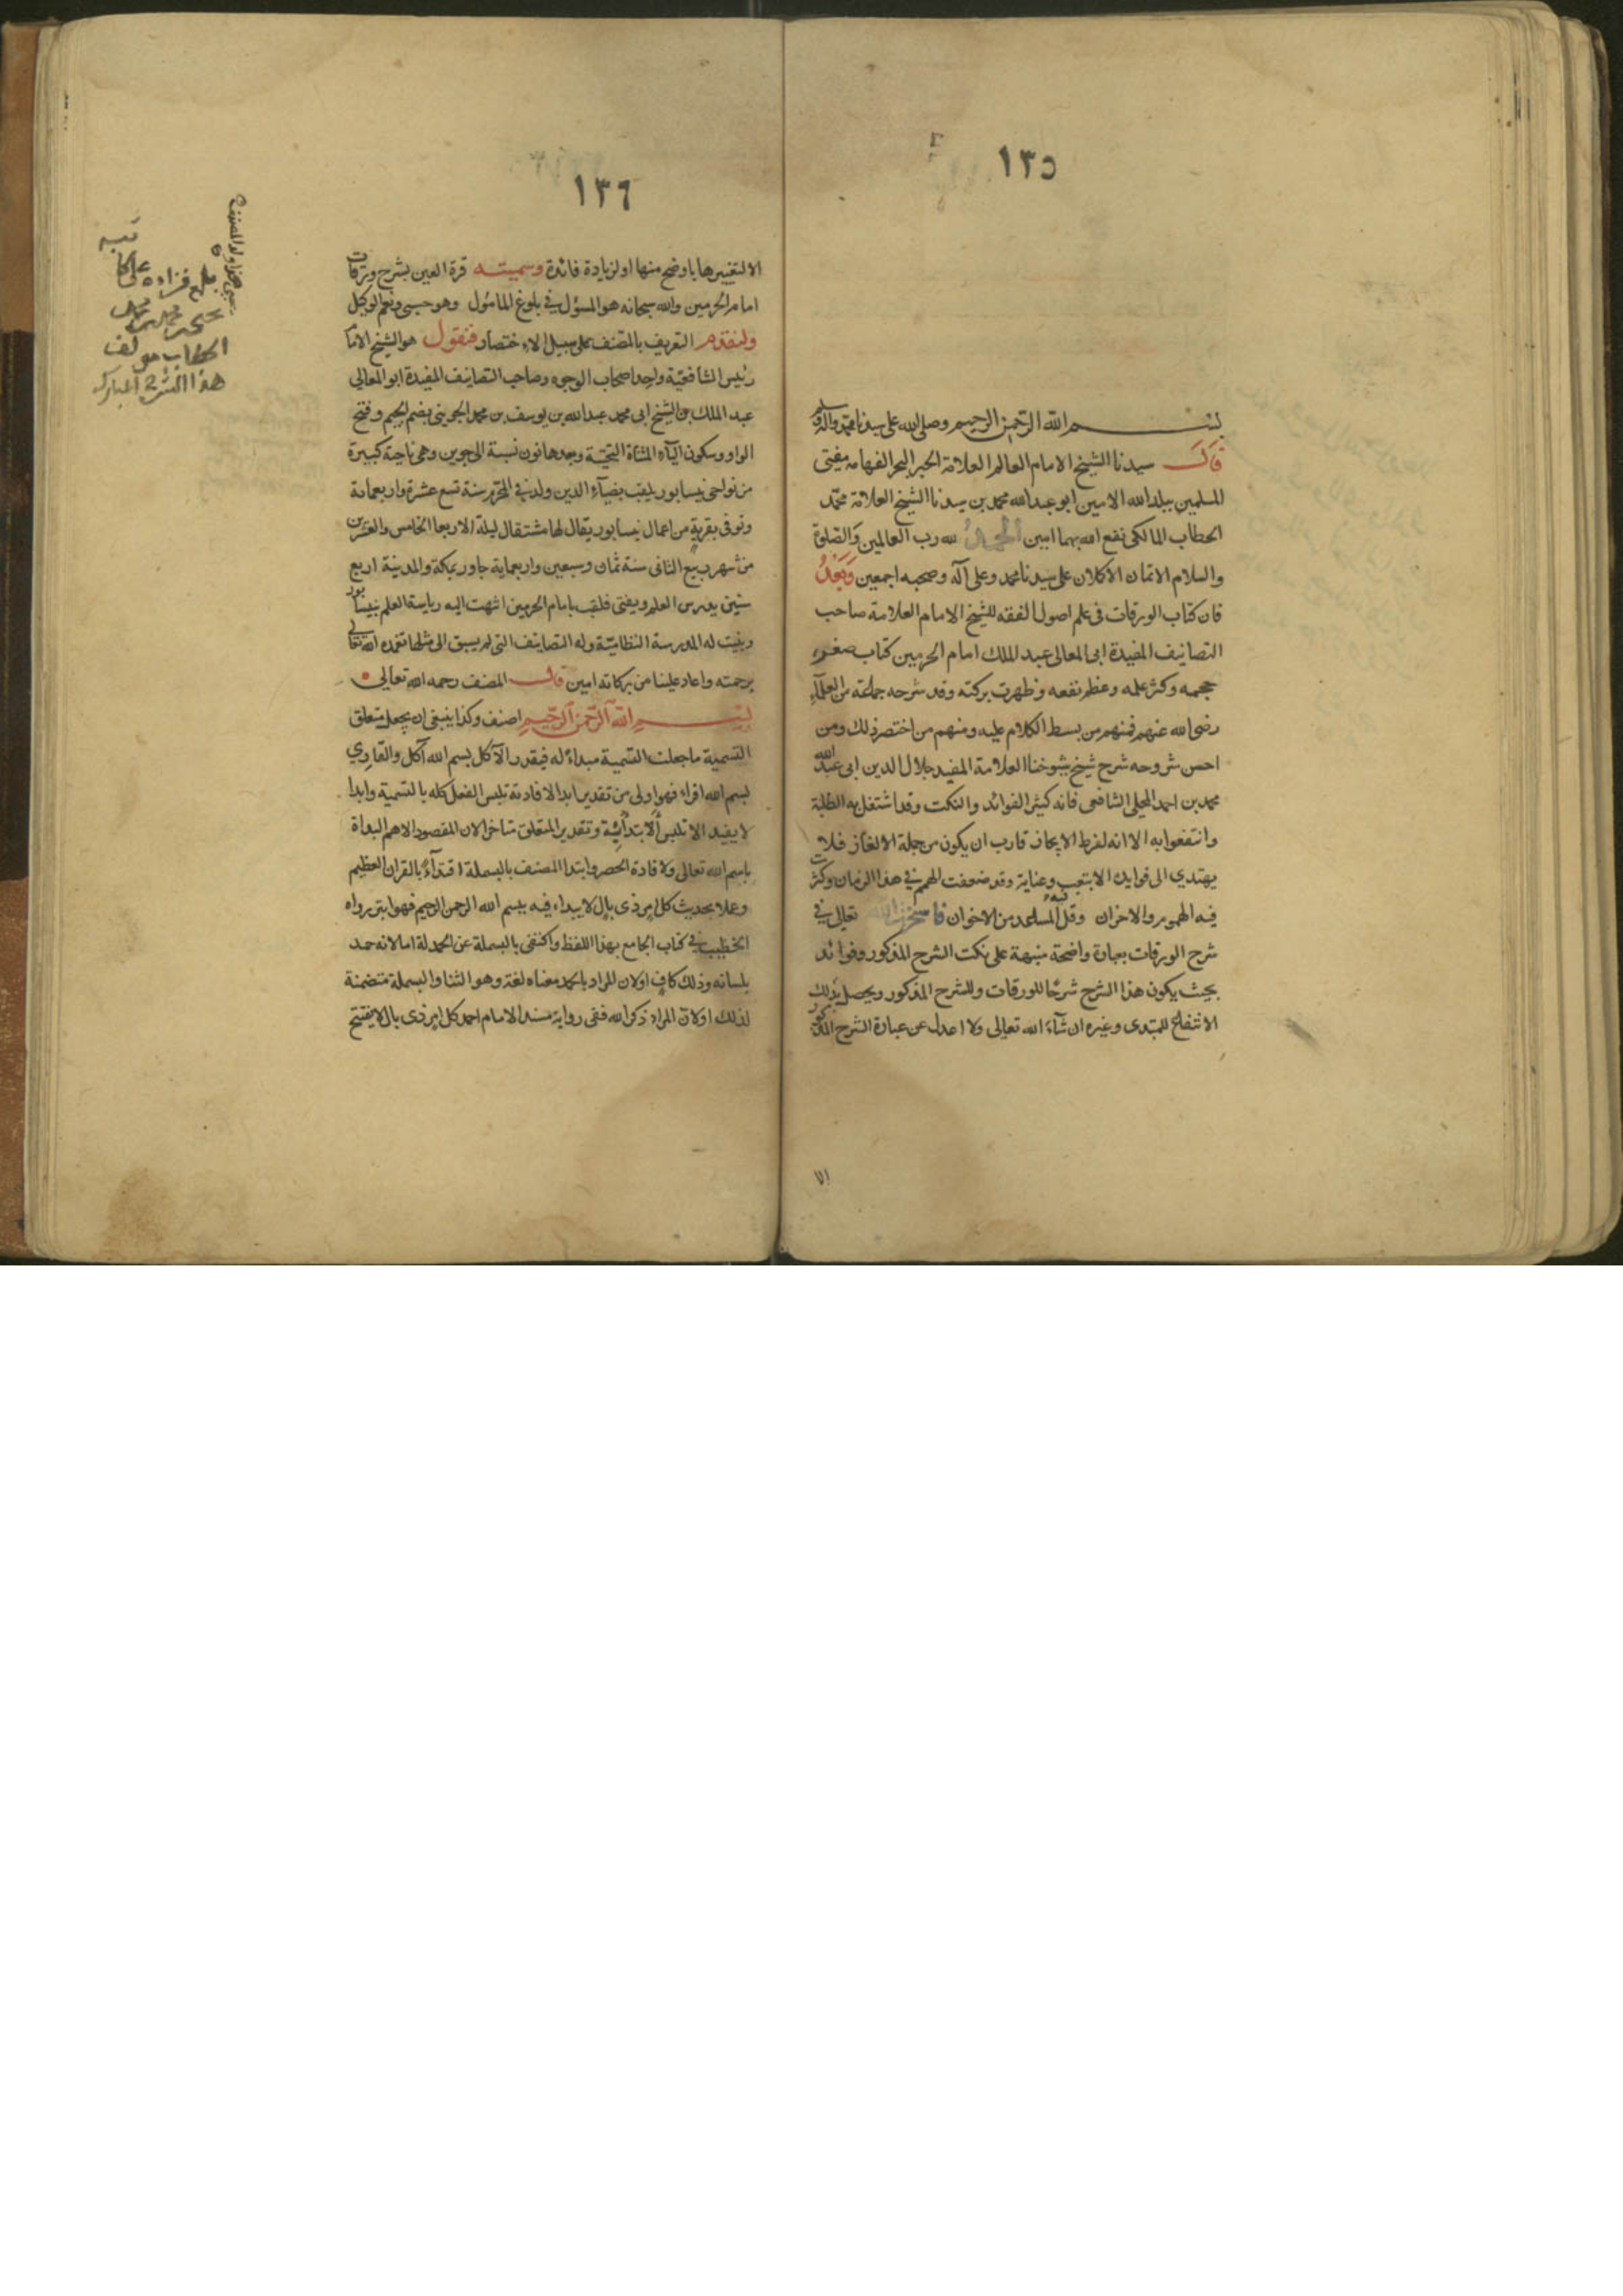 ١٣٥
بسم الله الرحمن الرحيم وصلى الله على سيدنا محمد واله وسلم
قال سيدنا الشيخ الامام العالم العلامة الحبر البحر الفهامه مفتى
المسلمين ببلد الله الامين ابو عبدالله محمد بن سيدنا الشيخ العلامة محمد
الحطاب المالكى نفع الله بهما امين الحمد لله رب العالمين والصلوة
والسلام الاتمان الاكملان على سيدنا محمد وعلى آله وصحبه اجمعين وبعد
فان كتاب الورقات فى علم اصول الفقه للشيخ الامام العلامة صاحب
التصانيف المفيدة ابى المعالى عبد الملك امام الحرمين كتاب صغر
حجمه وكثر علمه وعظم نفعه وظهرت بركته وقد شرحه جماعة من العلمآء
رضى الله عنهم فمنهم من بسط الكلام عليه ومنهم من اختصر ذلك ومن
احسن شروحه شرح شيخ شيوخنا العلامة المفيد جلال الدين ابى عبد الله
محمد بن احمد المحلى الشافعى فانه كثير الفوائد والنكت وقد اشتغل به الطلبة
وانتفعوا به الا انه لفرط الايجاز قارب ان يكون من جملة الالغاز فلا
يهتدي الى فوايده الا بتعب وعناية وقد ضعفت الهمم فى هذا الزمان وكثرت
فيه الهموم والاحزان وقل فيه المساعد من الاخوان فاستخرت الله تعالى فى
شرح الورقات بعبارة واضحة منبهة على نكت الشرح المذكور وفوائده
بحيث يكون هذا الشرح شرحا للورقات وللشرح المذكور ويحصل بذلك
الانتفاع للمبتدى وغيره ان شآء الله تعالى ولا اعدل عن عبارة الشرح المذكور
الا
١٣٦
الا لتغييرها باوضح منها او لزيادة فائدة وسميته قرة العين بشرح ورقات
امام الحرمين والله سبحانه هو المسؤل فى بلوغ المامول وهو حسبى ونعم الوكيل
ولنقدم التعريف بالمصنف على سبيل الاختصار فنقول هو الشيخ الامام
رئيس الشافعية واحد اصحاب الوجوه وصاحب التصانيف المفيدة ابو المعالى
عبد الملك بن الشيخ ابى محمد عبدالله بن يوسف بن محمد الجوينى بضم الجيم وفتح
الواو وسكون اليآء المثناة التحتية وبعدها نون نسبة الى جوين وهى ناحية كبيرة
من نواحى نيسابور يلقب بضيآء الدين ولد فى المحرم سنة تسع عشرة واربعماية
وتوفى بقرية من اعمال نيسابور يقال لها مشتقال ليلة الاربعا الخامس والعشرين
من شهر ربيع الثانى سنة ثمان وسبعين واربعماية جاور بمكة والمدينة اربع
سنين يدرس العلم ويفتى فلقب بامام الحرمين انتهت اليه رياسة العلم بنيسابور
وبنيت له المدرسة النظامية وله التصانيف التى لم يسبق الى مثلها تغمده الله تعالى
برحمته واعاد علينا من بركاته امين قال المصنف رحمه الله تعالى
بسم الله الرحمن الرحيم اصنف وكذا ينبغى ان يجعل متعلق
التسمية ما جعلت التسمية مبداء له فيقدر الآكل بسم الله آكل والقاري
بسم الله اقراء فهو اولى من تقدير ابدا لافادته تلبس الفعل كله بالتسمية وابدا
لا يفيد الا تلبس الابتدائية وتقدير المتعلق متاخرا لان المقصود الاهم البداة
باسم الله تعالى ولافادة الحصر وابتدا المصنف بالبسملة اقتدآء بالقران العظيم
وعملا بحديث كل امر ذى بال لا يبداء فيه ببسم الله الرحمن الرحيم فهو ابتر رواه
الخطيب فى كتاب الجامع بهذا اللفظ واكتفى بالبسملة عن الحمدلة اما لانه حمد
بلسانه وذلك كاف اولان المراد بالحمد معناه لغة وهو الثنا والبسملة متضمنة
لذلك اولان المراد ذكر الله ففى رواية مسند الامام احمد كل امر ذى بال لا يفتتح
بلغ قراءة على
الحطاب مولف
هذا الشرح المبارك